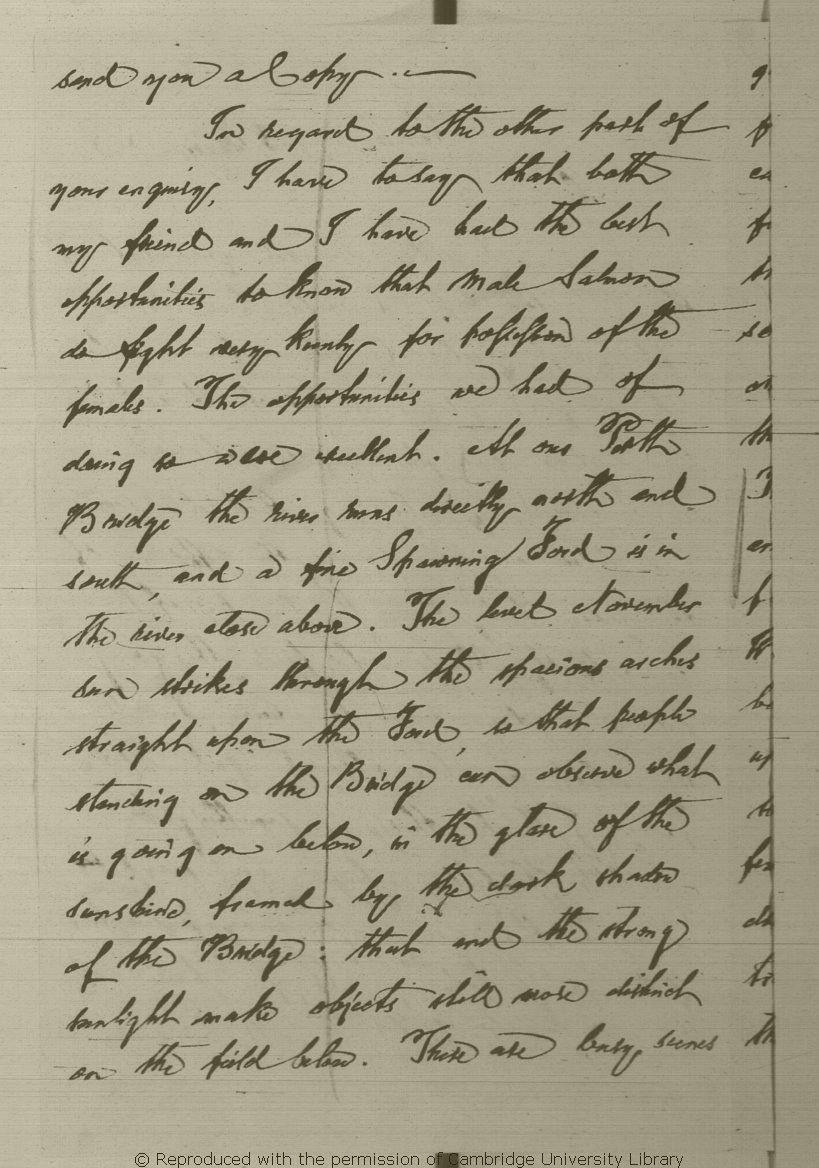 send you a Copy.—
In regard to the other part of
your enquiry, I have to say that both
my friend and I have had the best
opportunities to know that Male Salmon
do fight very keenly for possession of the
females. The opportunities we had of
doing so were excellent. At our Perth
Bridge the river runs directly north and
south, and a fine Spawning Ford is in
the river close above. The level November
sun strikes through the spacious arches
straight upon the Ford, so that people
standing on the Bridge can observe what
is going on below, in the glare of the
sunshine, framed by the dark shadow
of the Bridge: that and the strong
sunlight make objects still more distinct
on the field below. There are busy scenes
© Reproduced with the permission of Cambridge University Library